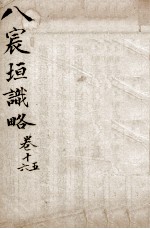 八宸垣識略
卷十五六